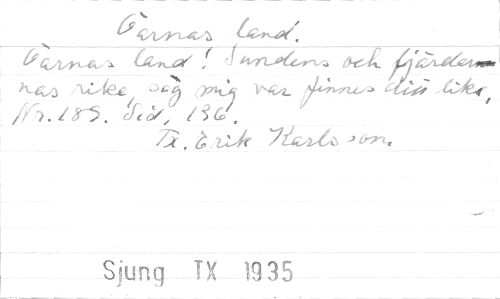 Öarnas land.
Öarnas land! Sundens och fjärdar-
nas rike, säg mig var finnes din like,
Nr. 189. Sid, 136.
Tr. Erik Karlsson.
Sjung TX 1935